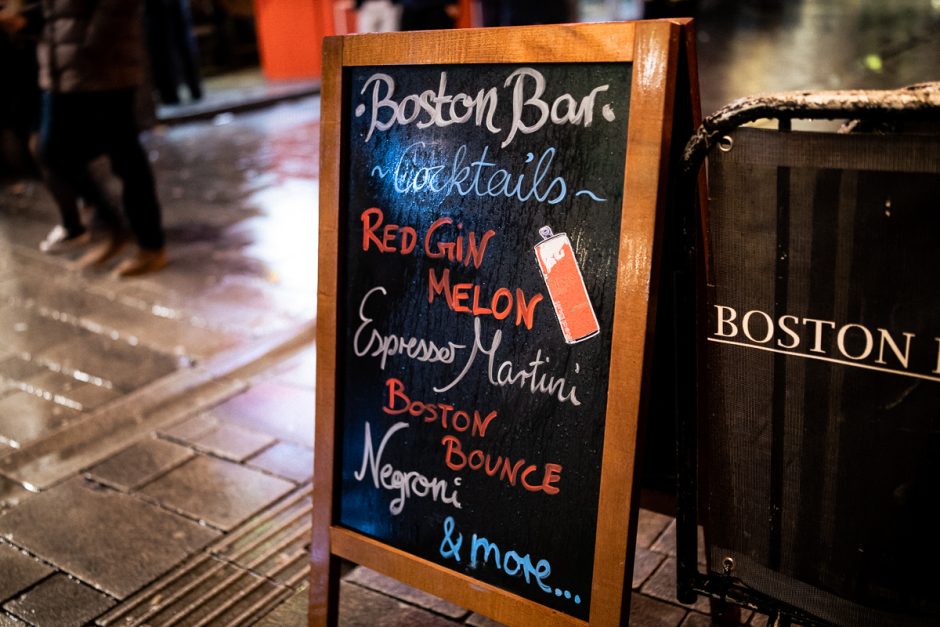 ·Boston Bar·
~Cocktails~
RED GIN
MELON
Espresso Martini
BOSTON
BOUNCE
Negroni
& more...
BOSTON